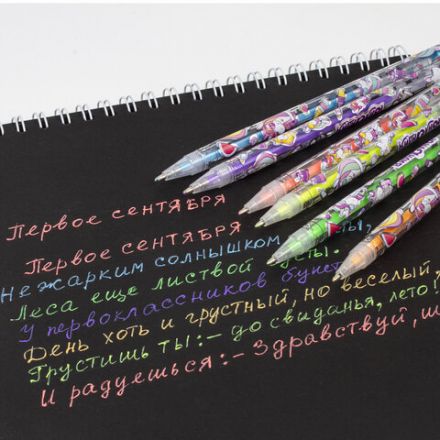 Первое сентября
Первое сентября
Нежарким солнышком ты,
Леса еще листвой густы.
У первоклассников букет
День хоть и грустный, но веселый,
Грустишь ты:- до свиданья, лето!
И радуешься:- Здравствуй, ш